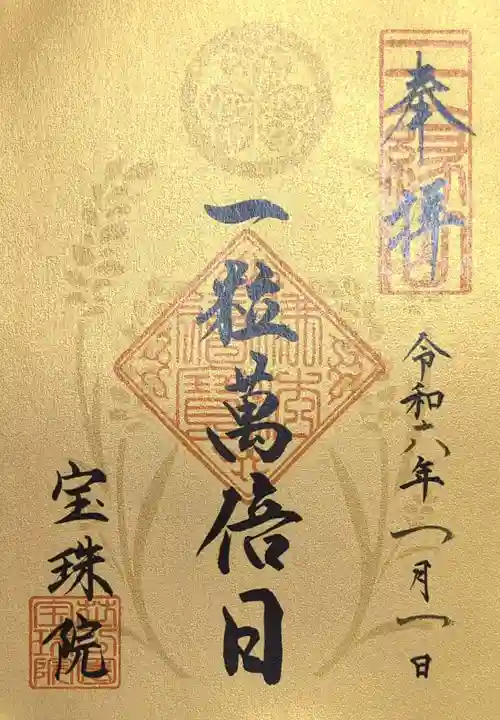 奉拝
令和六年一月一日
一粒萬倍日
宝珠院